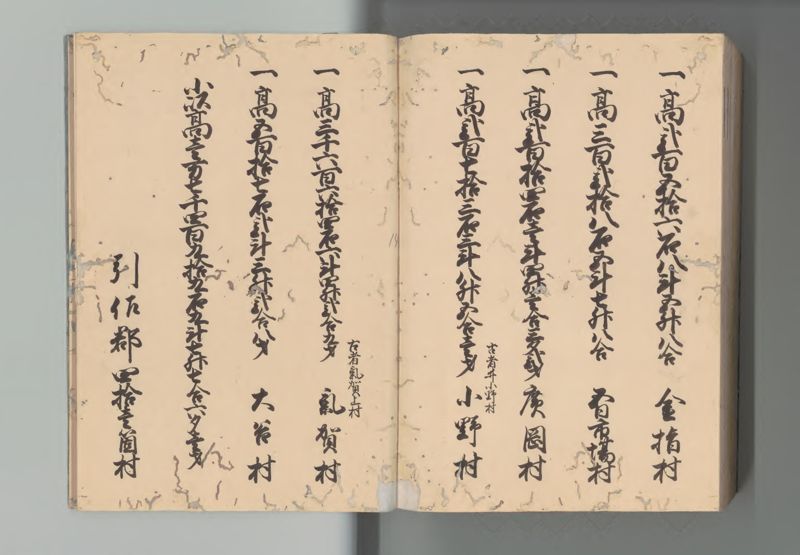 一高弐百五拾六石八斗五升八合 金指村
一高三百弐拾八石五斗七升八合 市場村
一高弐百拾四石 廣岡村
古者井小野村
一高弐百七拾三石三斗八升五合 小野村
古者気賀上村
一高三千六百六拾四石六斗四升弐合九夕 気賀村
一高五百拾七石弐斗三升弐合八夕 大谷村
小以高壱万七千四百九拾五石五斗七升七合六夕
引佐郡 四拾壱箇村